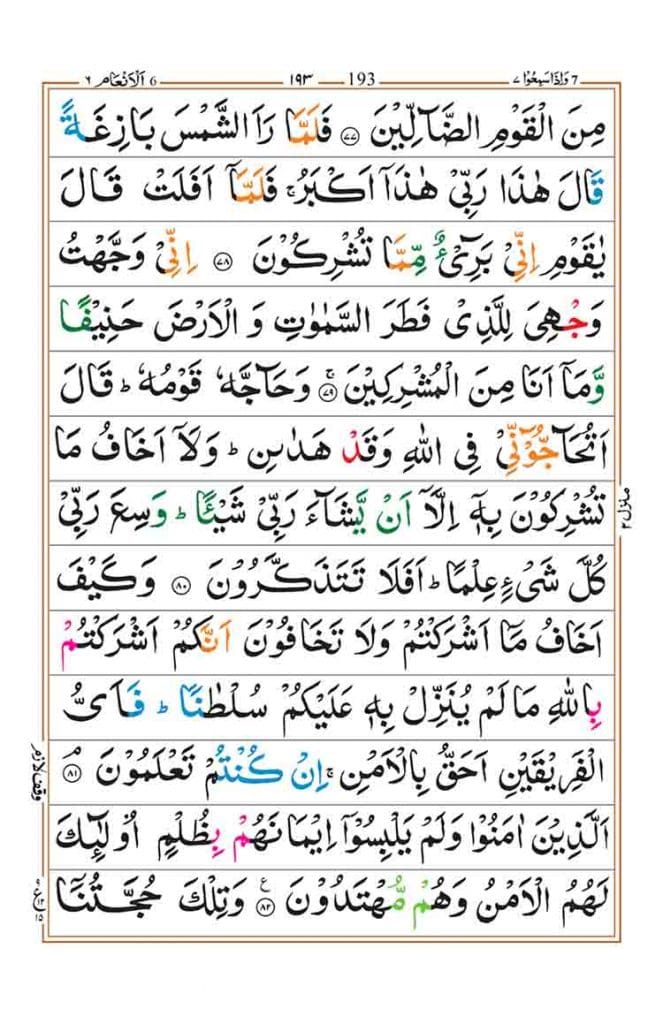 وَاِذَاسَمِعُوْا ٧ 7 193 ١٩٣ 6 اَلْاَنْعَام ٦
مِنَ الْقَوْمِ الضَّآلِّيْنَ ﴿٧٧﴾ فَلَمَّا رَاَ الشَّمْسَ بَازِغَةً
قَالَ هٰذَا رَبِّيْ هٰذَاۤ اَكْبَرُ ۚ فَلَمَّاۤ اَفَلَتْ قَالَ
يٰقَوْمِ اِنِّيْ بَرِيْٓءٌ مِّمَّا تُشْرِكُوْنَ ﴿٧٨﴾ اِنِّيْ وَجَّهْتُ
وَجْهِيَ لِلَّذِيْ فَطَرَ السَّمٰوٰتِ وَ الْاَرْضَ حَنِيْفًا
وَّمَاۤ اَنَا مِنَ الْمُشْرِكِيْنَ ﴿٧٩﴾ ۚ وَحَآجَّهٗ قَوْمُهٗ ؕ قَالَ
اَتُحَآجُّوْٓنِّيْ فِي اللّٰهِ وَقَدْ هَدٰىنِ ؕ وَلَاۤ اَخَافُ مَا
تُشْرِكُوْنَ بِهٖۤ اِلَّاۤ اَنْ يَّشَآءَ رَبِّيْ شَيْـًٔا ؕ وَسِعَ رَبِّيْ
كُلَّ شَيْءٍ عِلْمًا ؕ اَفَلَا تَتَذَكَّرُوْنَ ﴿٨٠﴾ وَكَيْفَ
اَخَافُ مَاۤ اَشْرَكْتُمْ وَلَا تَخَافُوْنَ اَنَّكُمْ اَشْرَكْتُمْ
بِاللّٰهِ مَا لَمْ يُنَزِّلْ بِهٖ عَلَيْكُمْ سُلْطٰنًا ؕ فَاَيُّ
الْفَرِيْقَيْنِ اَحَقُّ بِالْاَمْنِ ۚ اِنْ كُنْتُمْ تَعْلَمُوْنَ ﴿٨١﴾ ۘ
اَلَّذِيْنَ اٰمَنُوْا وَلَمْ يَلْبِسُوْۤا اِيْمَانَهُمْ بِظُلْمٍ اُولٰٓئِكَ
لَهُمُ الْاَمْنُ وَهُمْ مُّهْتَدُوْنَ ﴿٨٢﴾ ع وَتِلْكَ حُجَّتُنَاۤ
منزل ٢
وقف لازم